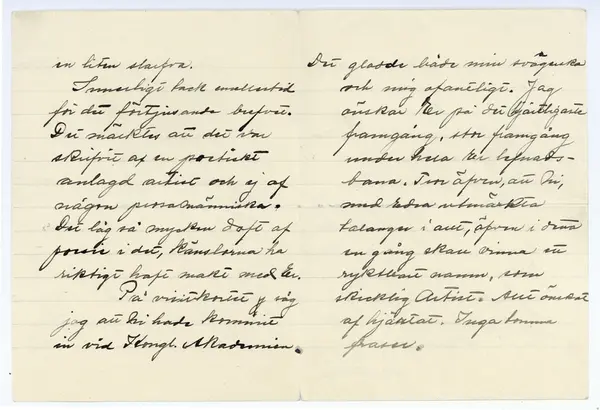 en liten starfva.
Innerligt tack emellertid
för det förtjusande brefvet.
Det märktes att det var
skrifvet af en poetiskt
anlagd artist och ej af
någon prosamänniska.
Det låg så mycken doft af
poesi i det, känslorna ha
riktigt haft makt med Er.
På visitkortet såg
jag att Ni hade kommit
in vid Kongl. Akademien.
Det gladde både min svägerska
och mig ofantligt. Jag
önskar Er på det hjärtligaste
framgång, stor framgång
under hela Er lefnads-
bana. Tror äfven, att Ni,
med Edra utmärkta
talanger i arf, äfven i denna
en gång skall vinna ett
ryktbart namn, som
skicklig Artist. Allt önskat
af hjärtat. Inga tomma
fraser.